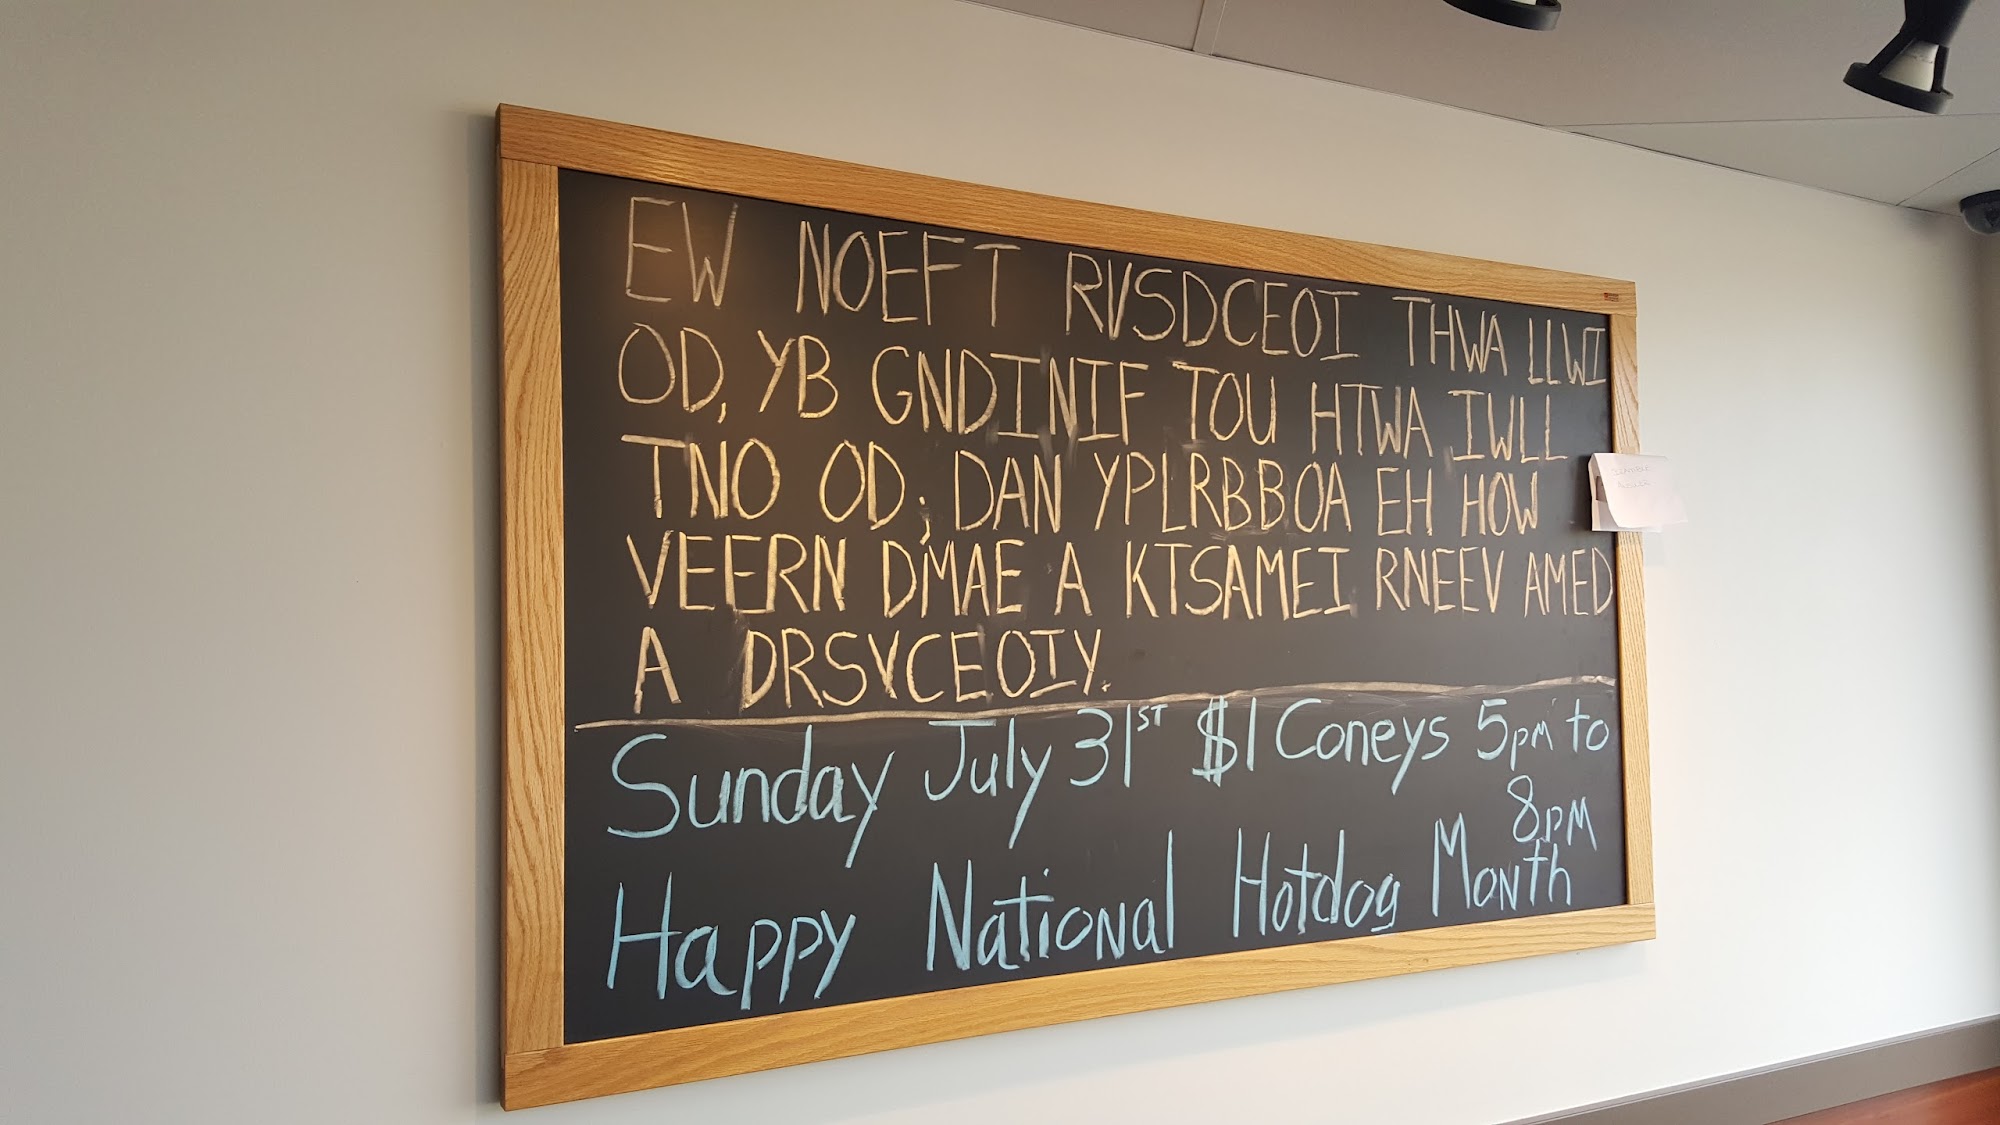 EW NOEFT RVSDCEOI THWA LLWI
OD, YB GNDINIF TOU HTWA IWLL
TNO OD; DAN YPLRBBOA EH HOW
VEERN DMAE A KTSAMEI RNEEV AMED
A DRSVCEOIY.
Sunday July 31ST $1 Coneys 5pm to
8pm
Happy National Hotdog Month